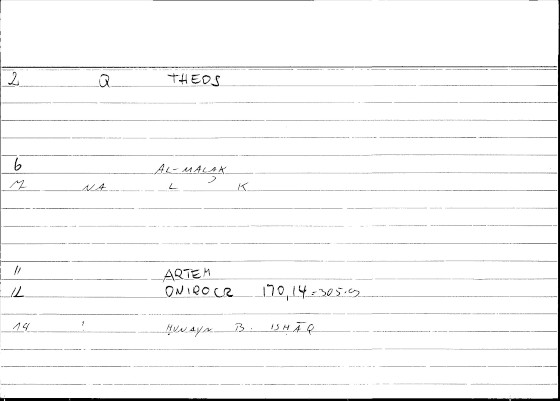 2 Q THEOS
6 AL-MALAK
M NA L K
11 ARTEM
12 ONIROCR 170,14 = 305.9
14 ' HUNAYN B. ISHĀQ